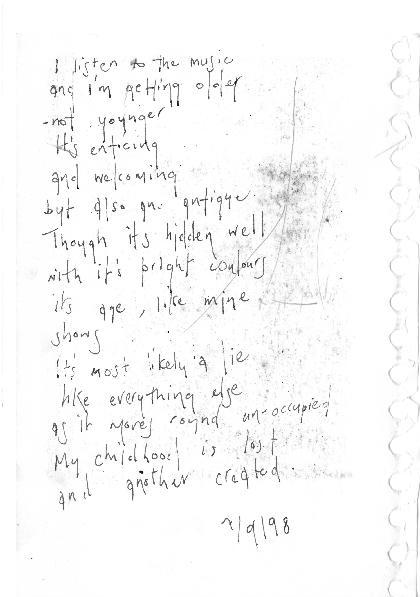 I listen to the music
and i'm getting older
-not younger
It's enticing
and welcoming
but also an antique
Though its hidden well
with it's bright colours
its age, like mine
shows
It's most likely a lie
like everything else
as it moves round un-occupied
My childhood is lost
and another created.
/9/98